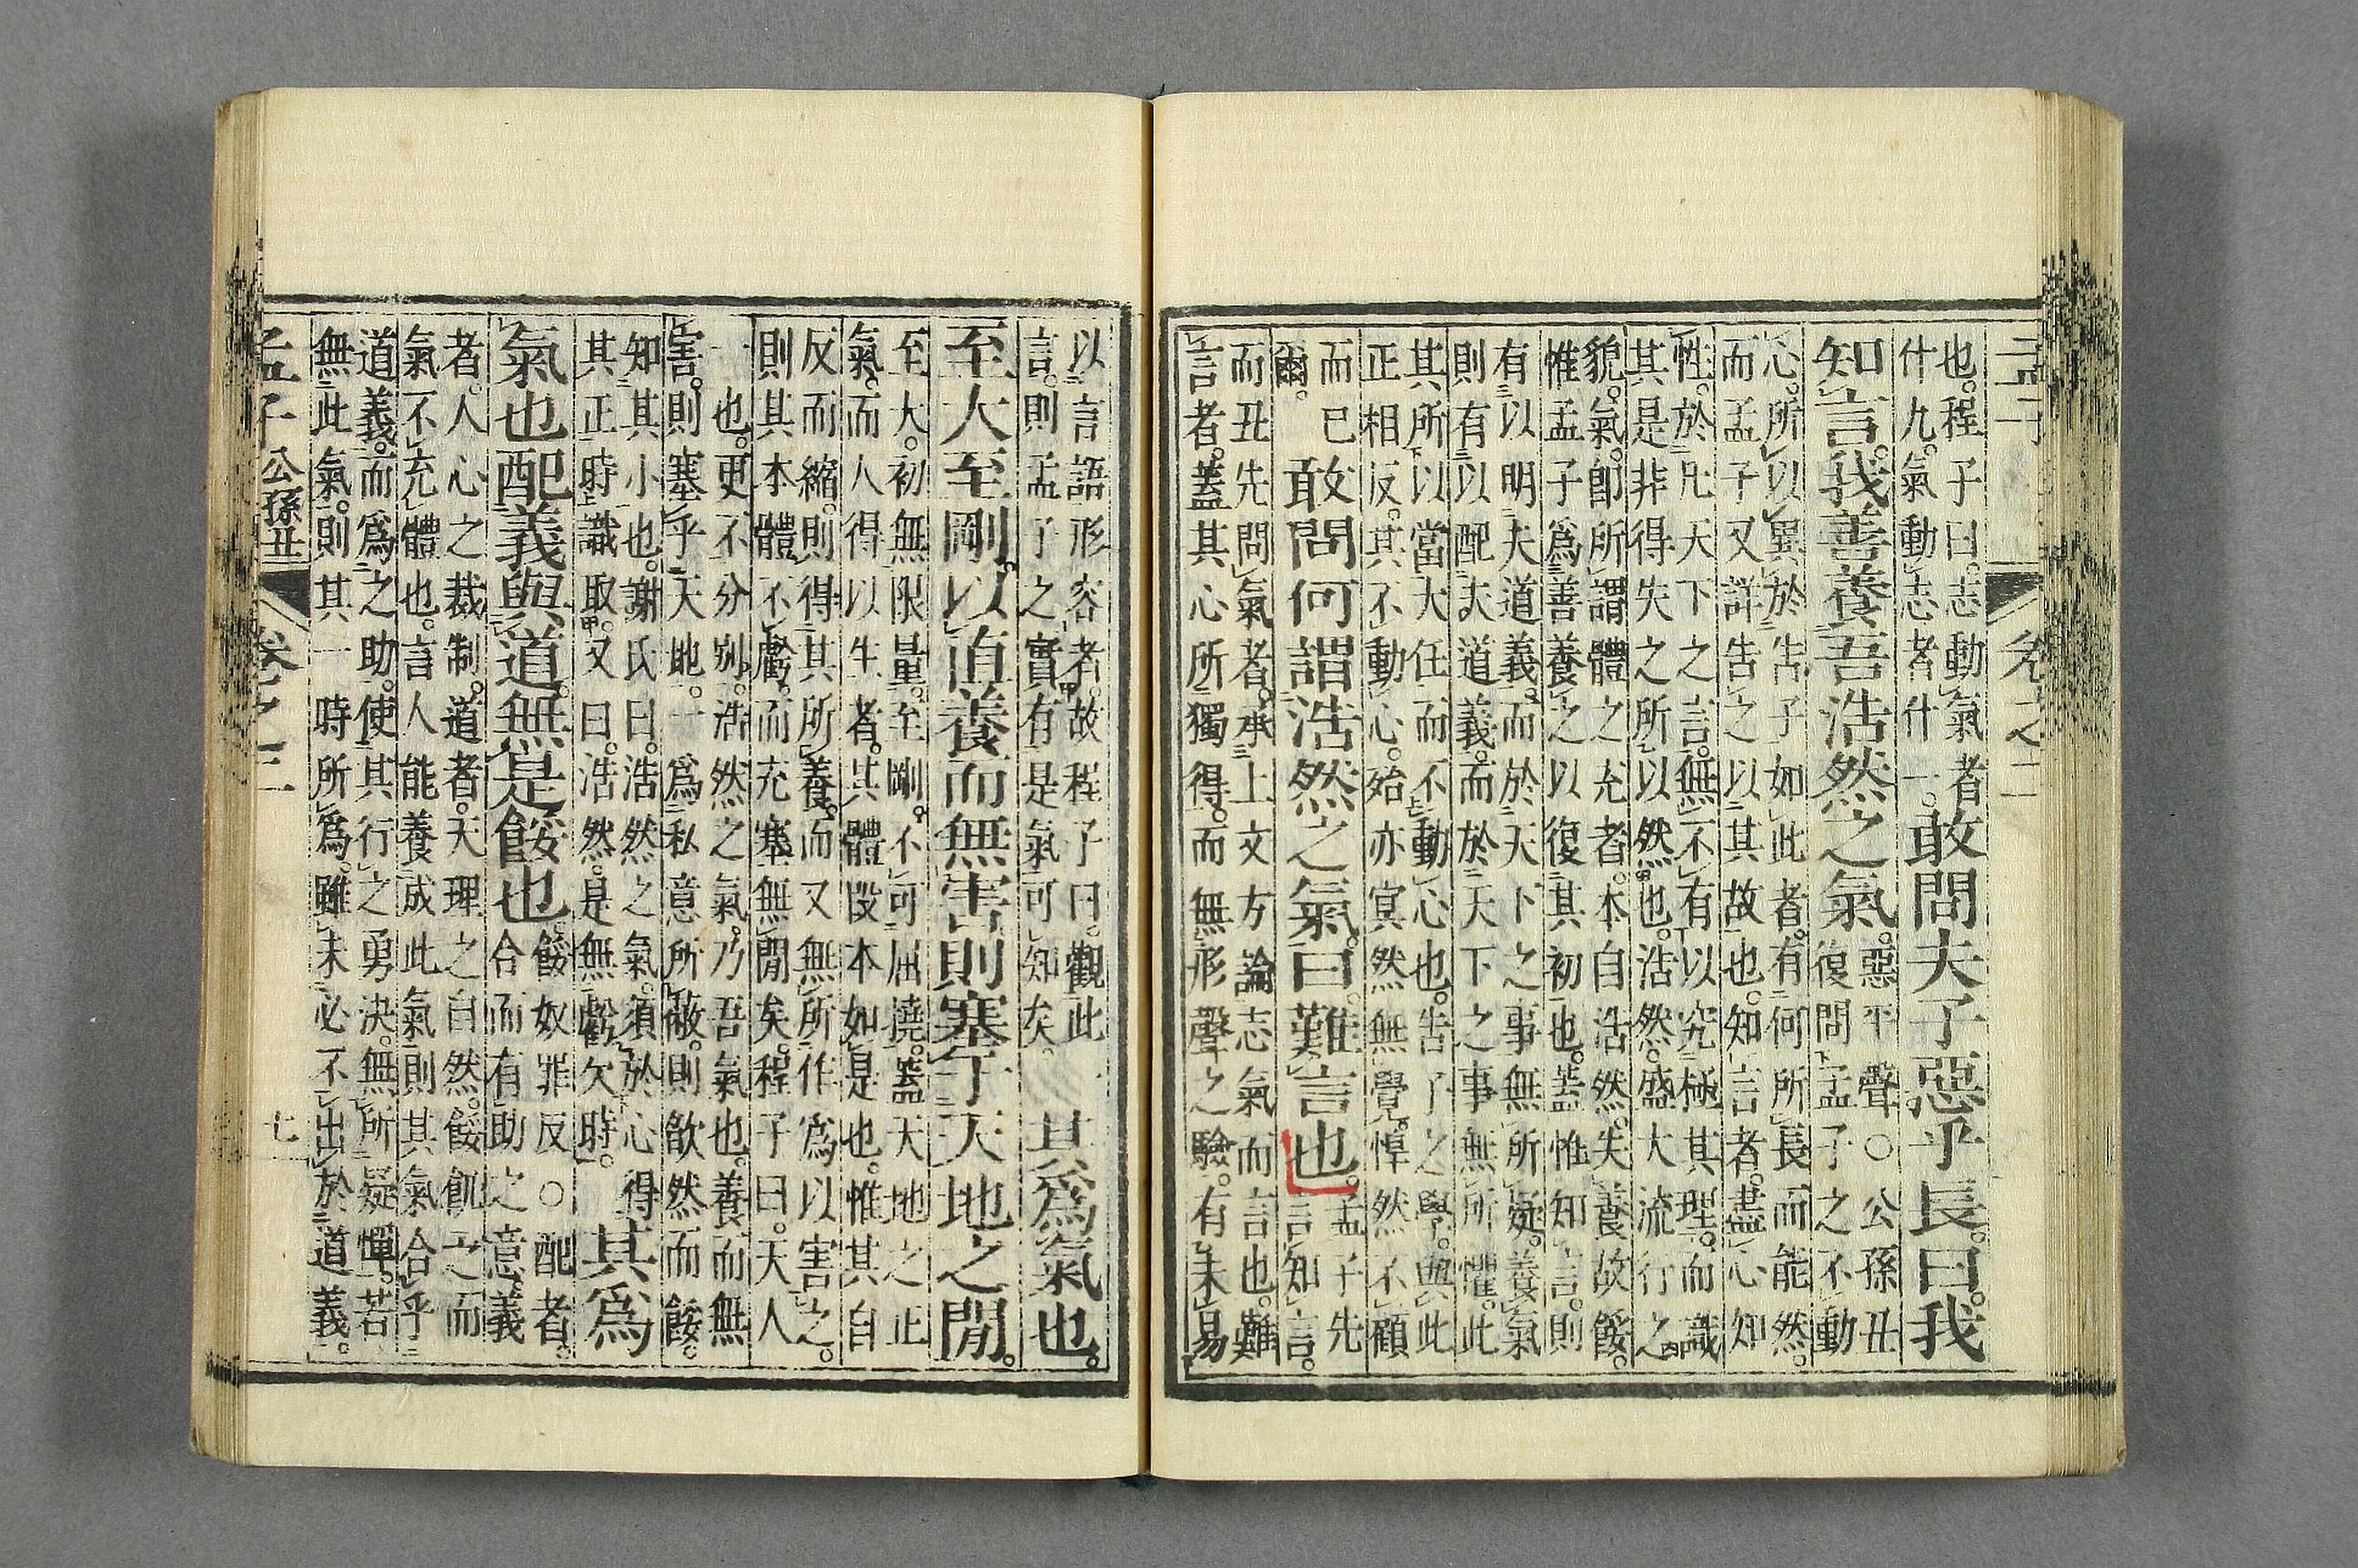 孟子
卷之二
也。程子曰。志動氣者
什九。氣動志者什一。
敢問夫子惡乎長。曰。我
知言。我善養吾浩然之氣。
惡平聲○公孫丑
復問孟子之不動
心。所以異於告子如此者。有何所長而能然。
而孟子又詳告之以其故也。知言者。盡心知
性。於凡天下之言。無不有以究極其理。而識
其是非得失之所以然也。浩然。盛大流行之
貌。氣。卽所謂體之充者。本自浩然。失養故餒。
惟孟子爲善養之以復其初也。蓋惟知言。則
有以明夫道義。而於天下之事無所疑。養氣
則有以配夫道義。而於天下之事無所懼。此
其所以當大任而不動心也。告子之學。與此
正相反。其不動心。殆亦冥然無覺。悍然不顧
而已
爾。
敢問何謂浩然之氣。曰。難言也。
孟子先
言知言。
而丑先問氣者。承上文方論志氣而言也。難
言者。蓋其心所獨得。而無形聲之驗。有未易
以言語形容者。故程子曰。觀此一
言。則孟子之實有是氣可知矣。
其爲氣也。
至大至剛。以直養而無害。則塞于天地之閒。
至大。初無限量。至剛。不可屈撓。蓋天地之正
氣。而人得以生者。其體段本如是也。惟其自
反而縮。則得其所養。而又無所作爲以害之。
則其本體不虧。而充塞無閒矣。程子曰。天人
一也。更不分別。浩然之氣。乃吾氣也。養而無
害。則塞乎天地。一爲私意所蔽。則欿然而餒。
知其小也。謝氏曰。浩然之氣。須於心得
其正時識取。又曰。浩然。是無虧欠時。
其爲
氣也。配義與道。無是餒也。
餒奴罪反○配者。
合而有助之意。義
者。人心之裁制。道者。天理之自然。餒飢乏而
氣不充體也。言人能養成此氣。則其氣合乎
道義。而爲之助。使其行之勇決。無所疑憚。若
無此氣。則其一時所爲。雖未必不出於道義。
孟子
公孫丑
卷之二
七